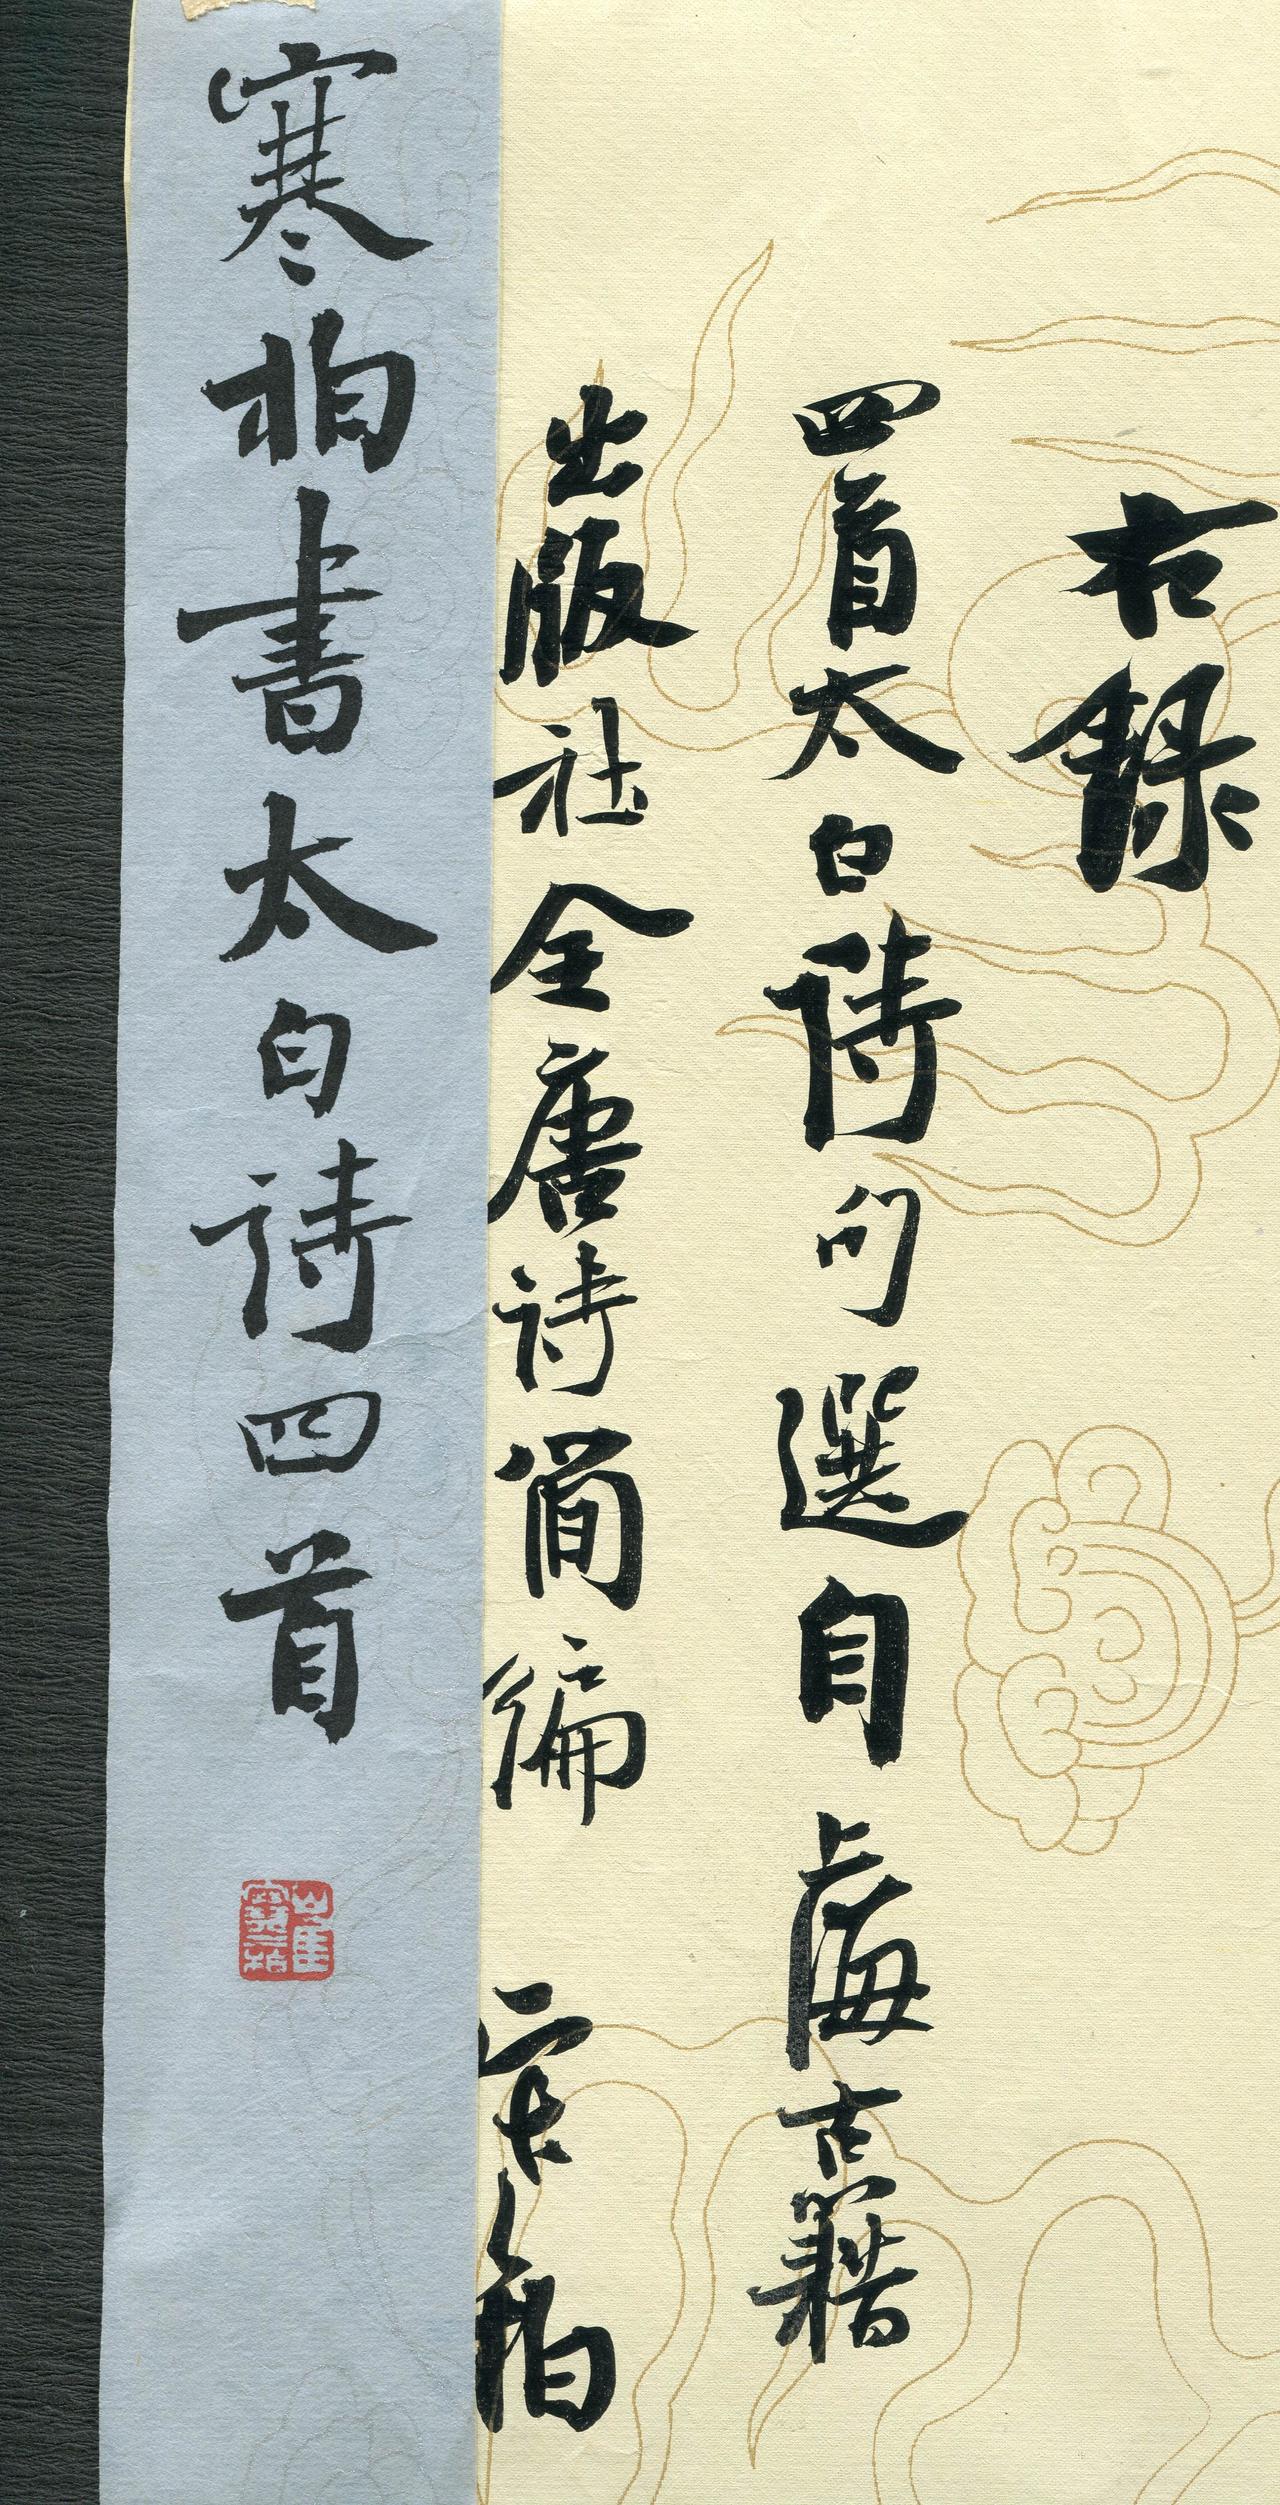 右録
四首太白詩句選自上海古籍
出版社全唐詩簡編 寒柏
寒柏書太白詩四首
崔寒柏